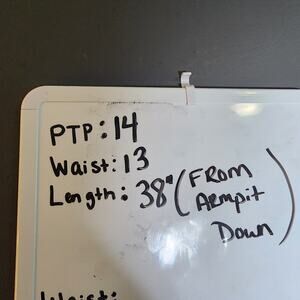 PTP: 14
Waist: 13
Length: 38" (FROM
Armpit
Down)
Waist: